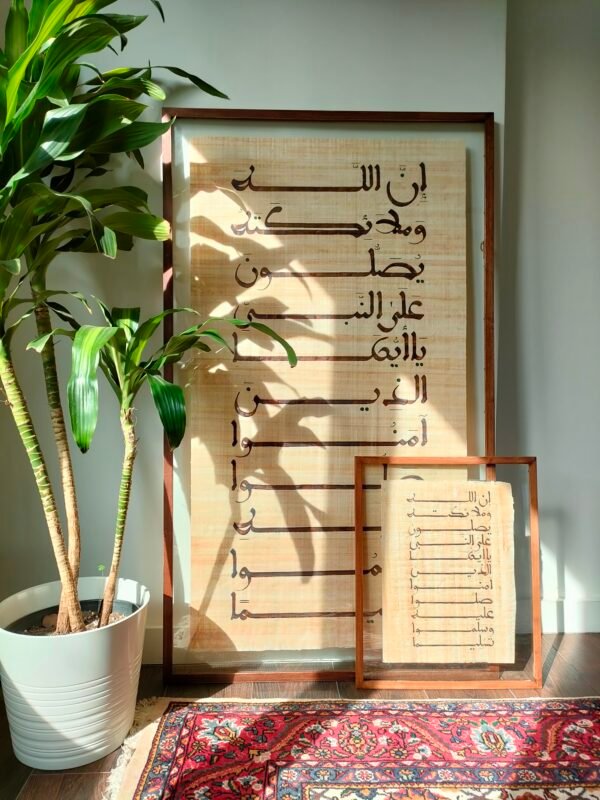 إنَّ اللَّه
وَملائكته
يُصَلُّون
عَلى النَّبي
يَاأيُّها
الذين
آمَنُوا
ان الله
وملائكته
يصلون
على النبي
ياأيها
الذين
امنوا
صلوا
عليه
وسلموا
تسليما